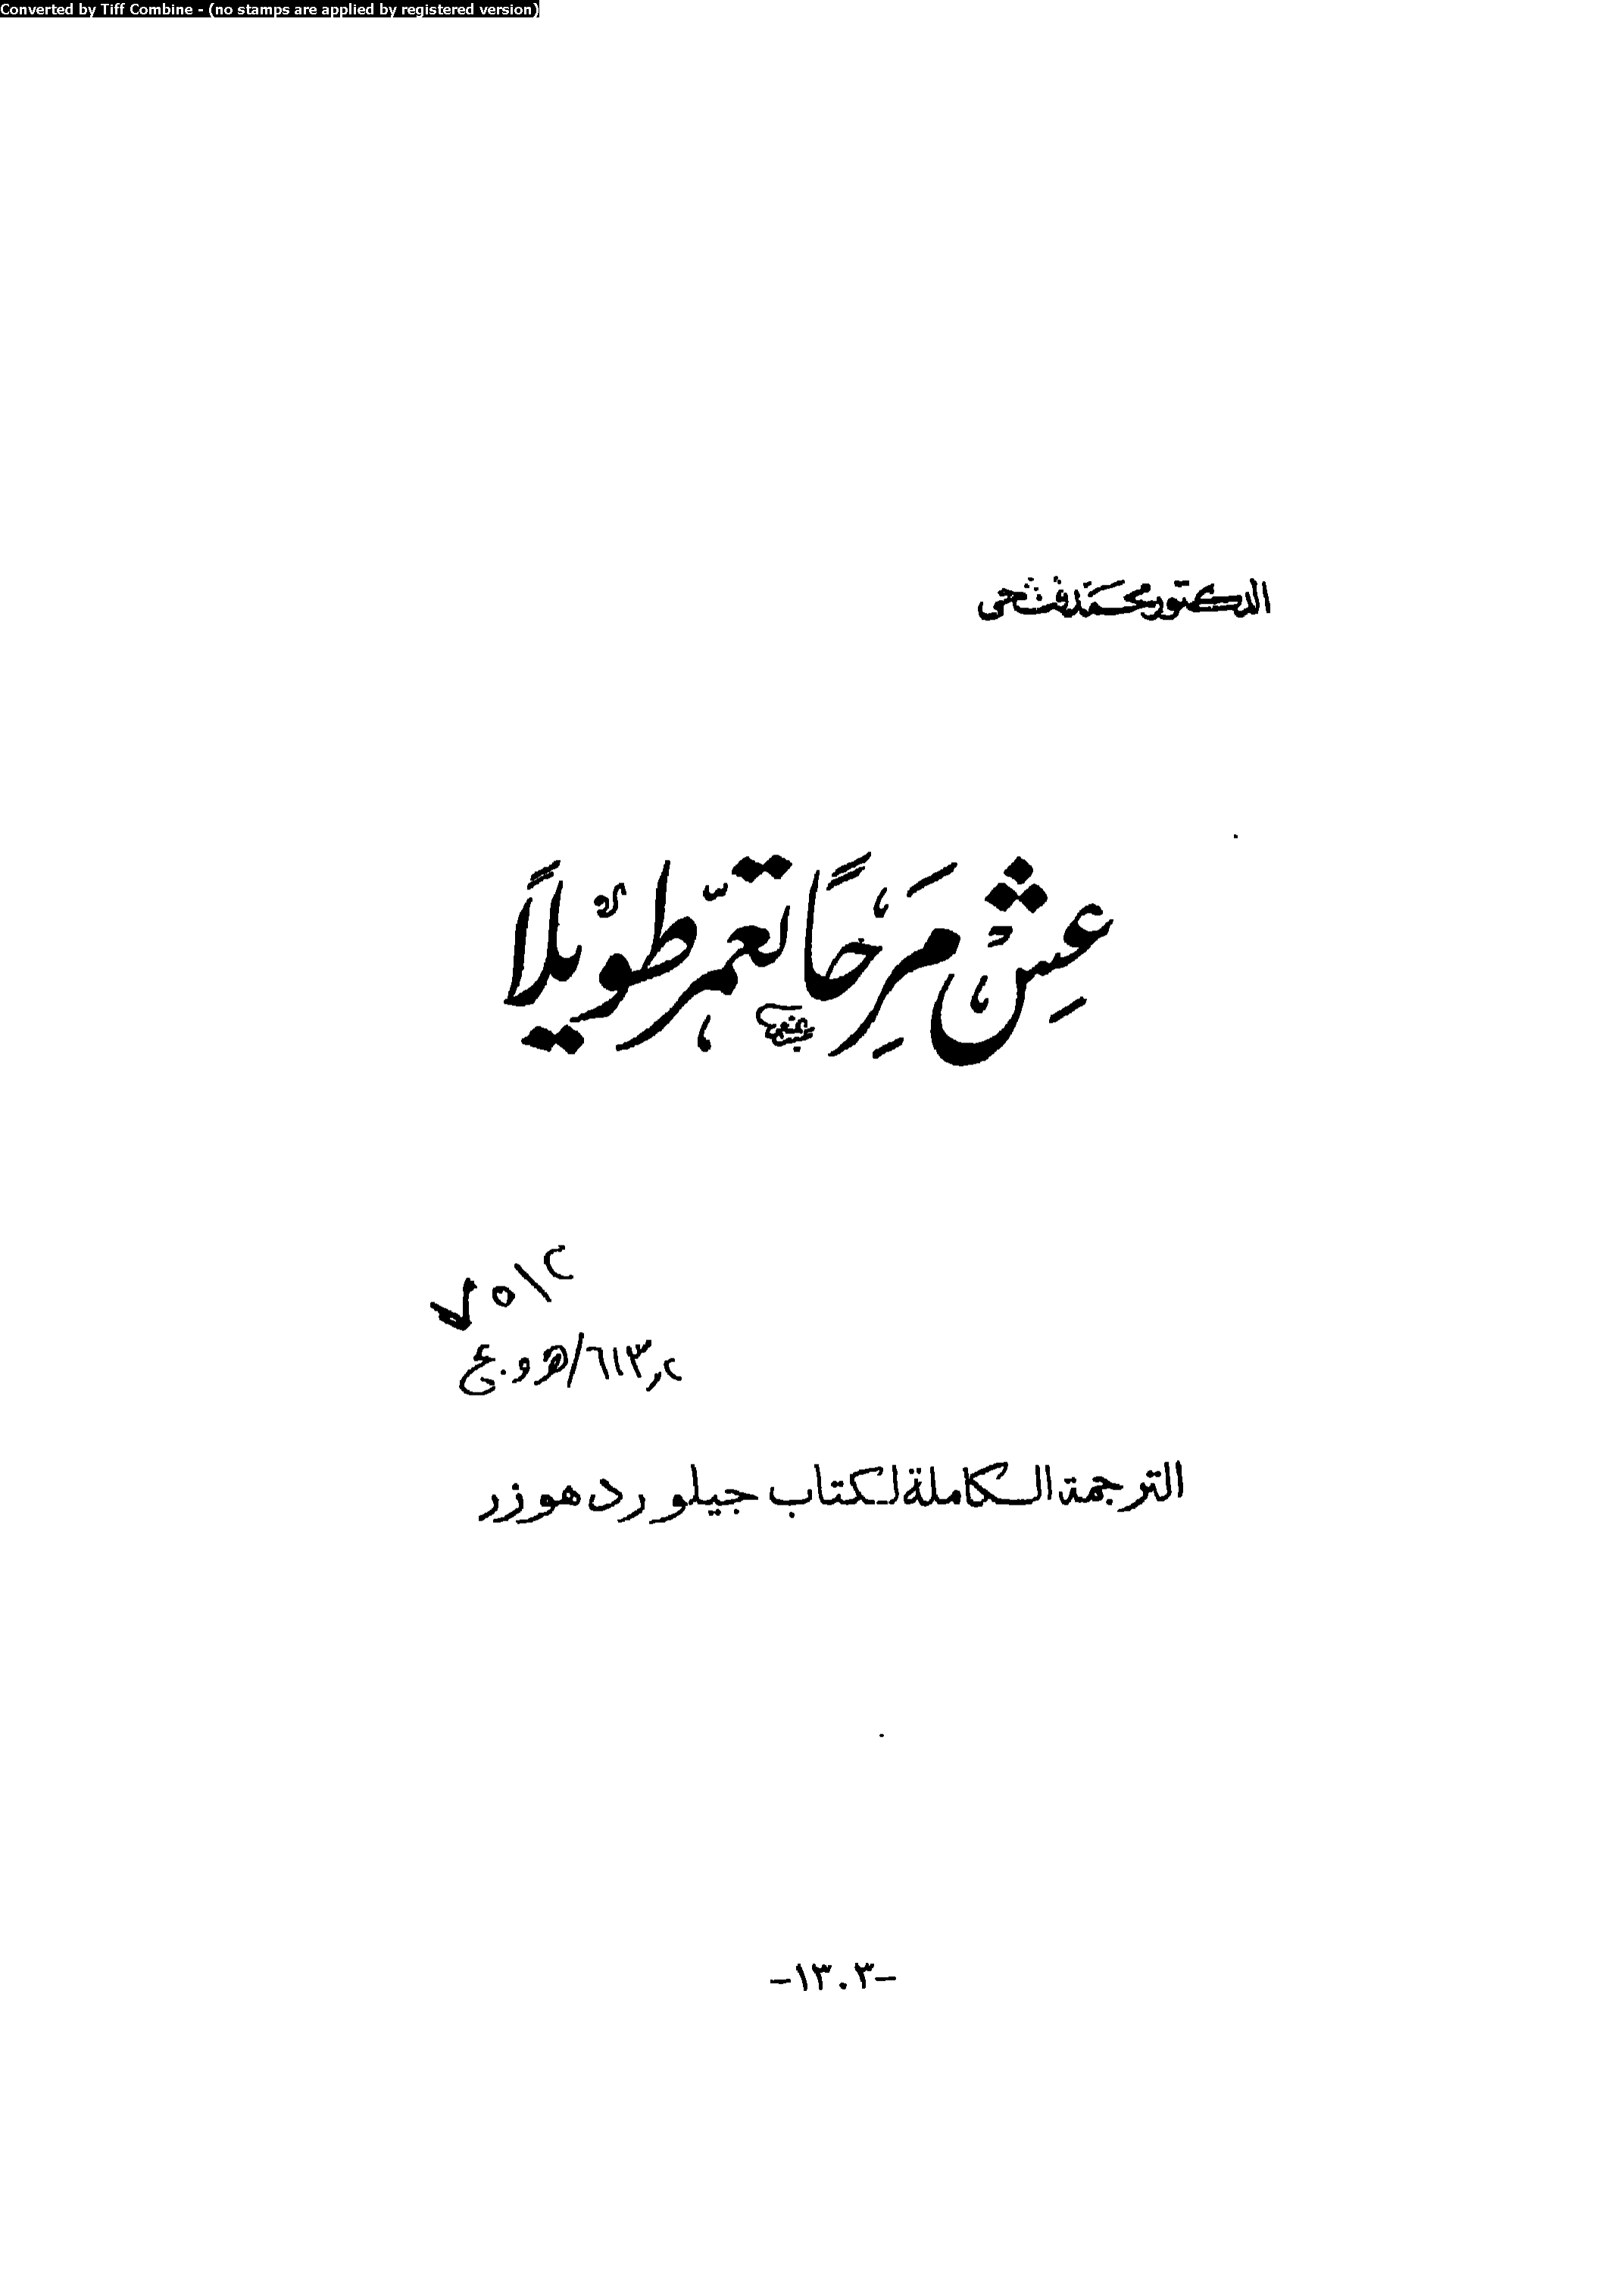 Converted by Tiff Combine - (no stamps are applied by registered version)
الدكتور محمد فتحى
عِشْ مَرِحًا تعمّر طويْلًا
٦١٣,٢/هـ و.ع
الترجمة الكاملة لكتاب جيلورد هوزر
-١٣٠٣-